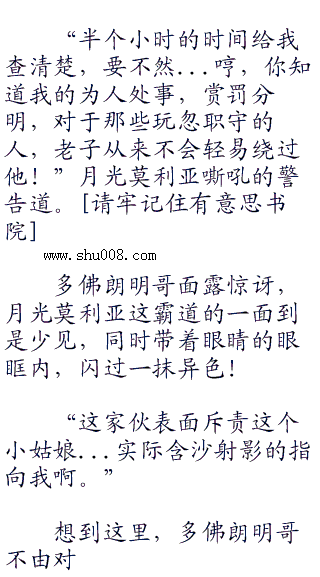 “半个小时的时间给我
查清楚，要不然...哼，你知
道我的为人处事，赏罚分
明，对于那些玩忽职守的
人，老子从来不会轻易绕过
他！”月光莫利亚嘶吼的警
告道。[请牢记住有意思书
院]
www.shu008.com
多佛朗明哥面露惊讶，
月光莫利亚这霸道的一面到
是少见，同时带着眼睛的眼
眶内，闪过一抹异色！
“这家伙表面斥责这个
小姑娘...实际含沙射影的指
向我啊。”
想到这里，多佛朗明哥
不由对